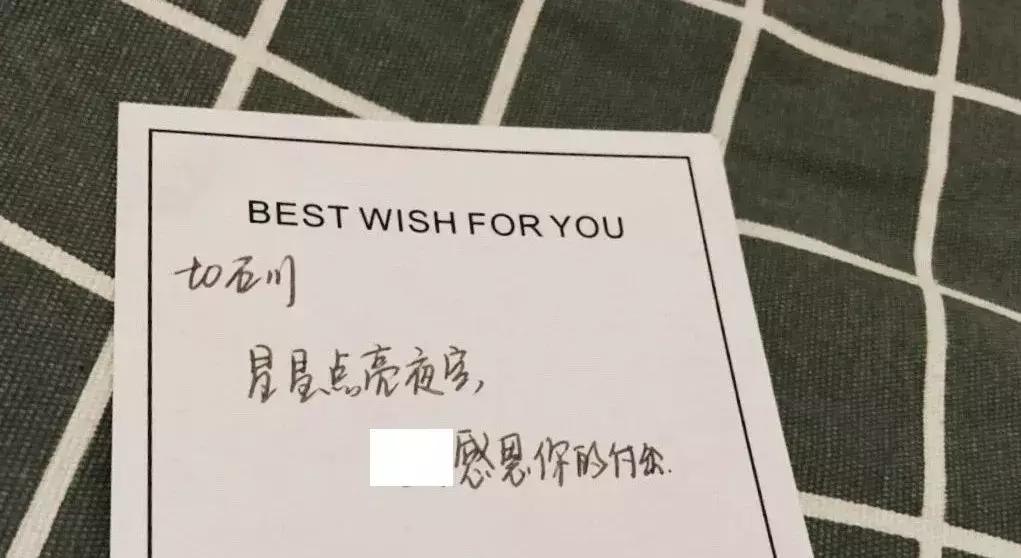 BEST WISH FOR YOU
to石川
星星点亮夜空,
感恩你的付出.